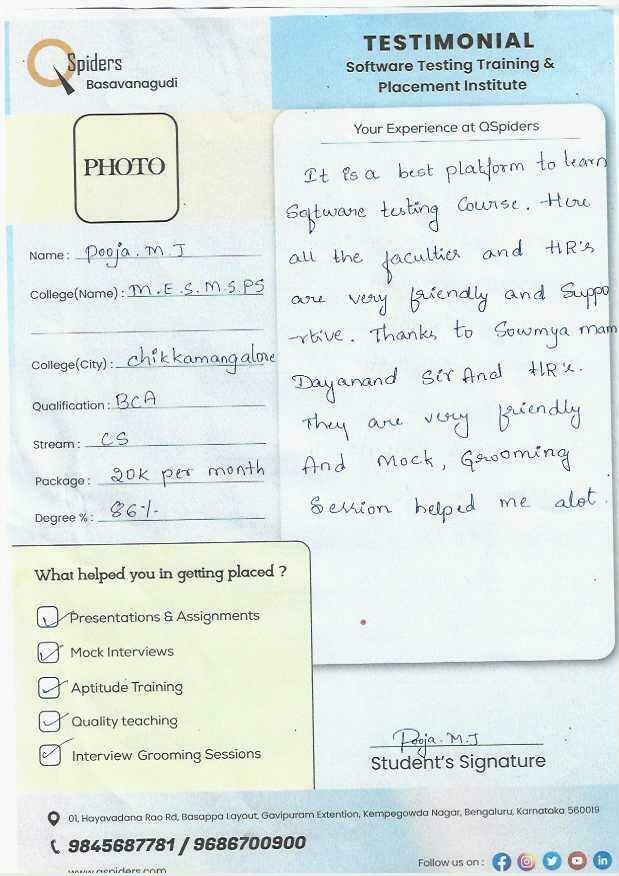 QSpiders
Basavanagudi
TESTIMONIAL
Software Testing Training &
Placement Institute
PHOTO
Name : Pooja. M. J
College(Name) : M. E. S. M. S. PS
College(City) : Chikkamangalore
Qualification : BCA
Stream : CS
Package : 20K per month
Degree % : 86%
Your Experience at QSpiders
It is a best platform to learn
Software testing Course. Here
all the faculties and HR's
are very friendly and suppo
-rtive. Thanks to Sowmya mam
Dayanand Sir And HR's.
They are very friendly
And Mock, Grooming
Session helped me alot.
What helped you in getting placed ?
Presentations & Assignments
Mock Interviews
Aptitude Training
Quality teaching
Interview Grooming Sessions
Pooja. M. J
Student's Signature
01, Hayavadana Rao Rd, Basappa Layout, Gavipuram Extention, Kempegowda Nagar, Bengaluru, Karnataka 560019
9845687781 / 9686700900
www.qspiders.com
Follow us on :